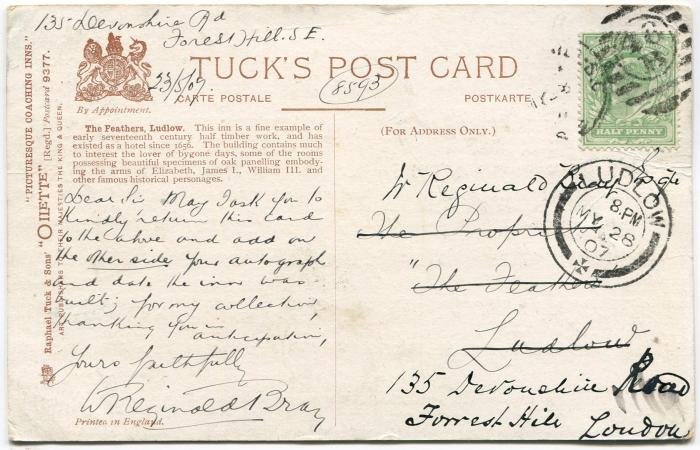 135 Devonshire Rd
Forest Hill. S.E.
23/5/07.
TUCK'S POST CARD
By Appointment.
CARTE POSTALE
8593
POSTKARTE
HALF PENNY
The Feathers, Ludlow. This inn is a fine example of
early seventeenth century half timber work, and has
existed as a hotel since 1656. The building contains much
to interest the lover of bygone days, some of the rooms
possessing beautiful specimens of oak panelling embody-
ing the arms of Elizabeth, James I., William III. and
other famous historical personages.
(FOR ADDRESS ONLY.)
Dear Sir May I ask you to
kindly return this card
to the above and add on
the other side your autograph
and date the inn was
built; for my collection,
thanking you in
anticipation,
Yours faithfully
W Reginald Bray
Printed in England.
"PICTURESQUE COACHING INNS."
Raphael Tuck & Sons' "OILETTE" [Regd.] Postcard 9377.
ART PUBLISHERS TO THEIR MAJESTIES THE KING & QUEEN.
W Reginald Bray
The
"The Feathers
Ludlow
135 Devonshire Road
Forrest Hill
London
LUDLOW
8. PM
MY 28
07